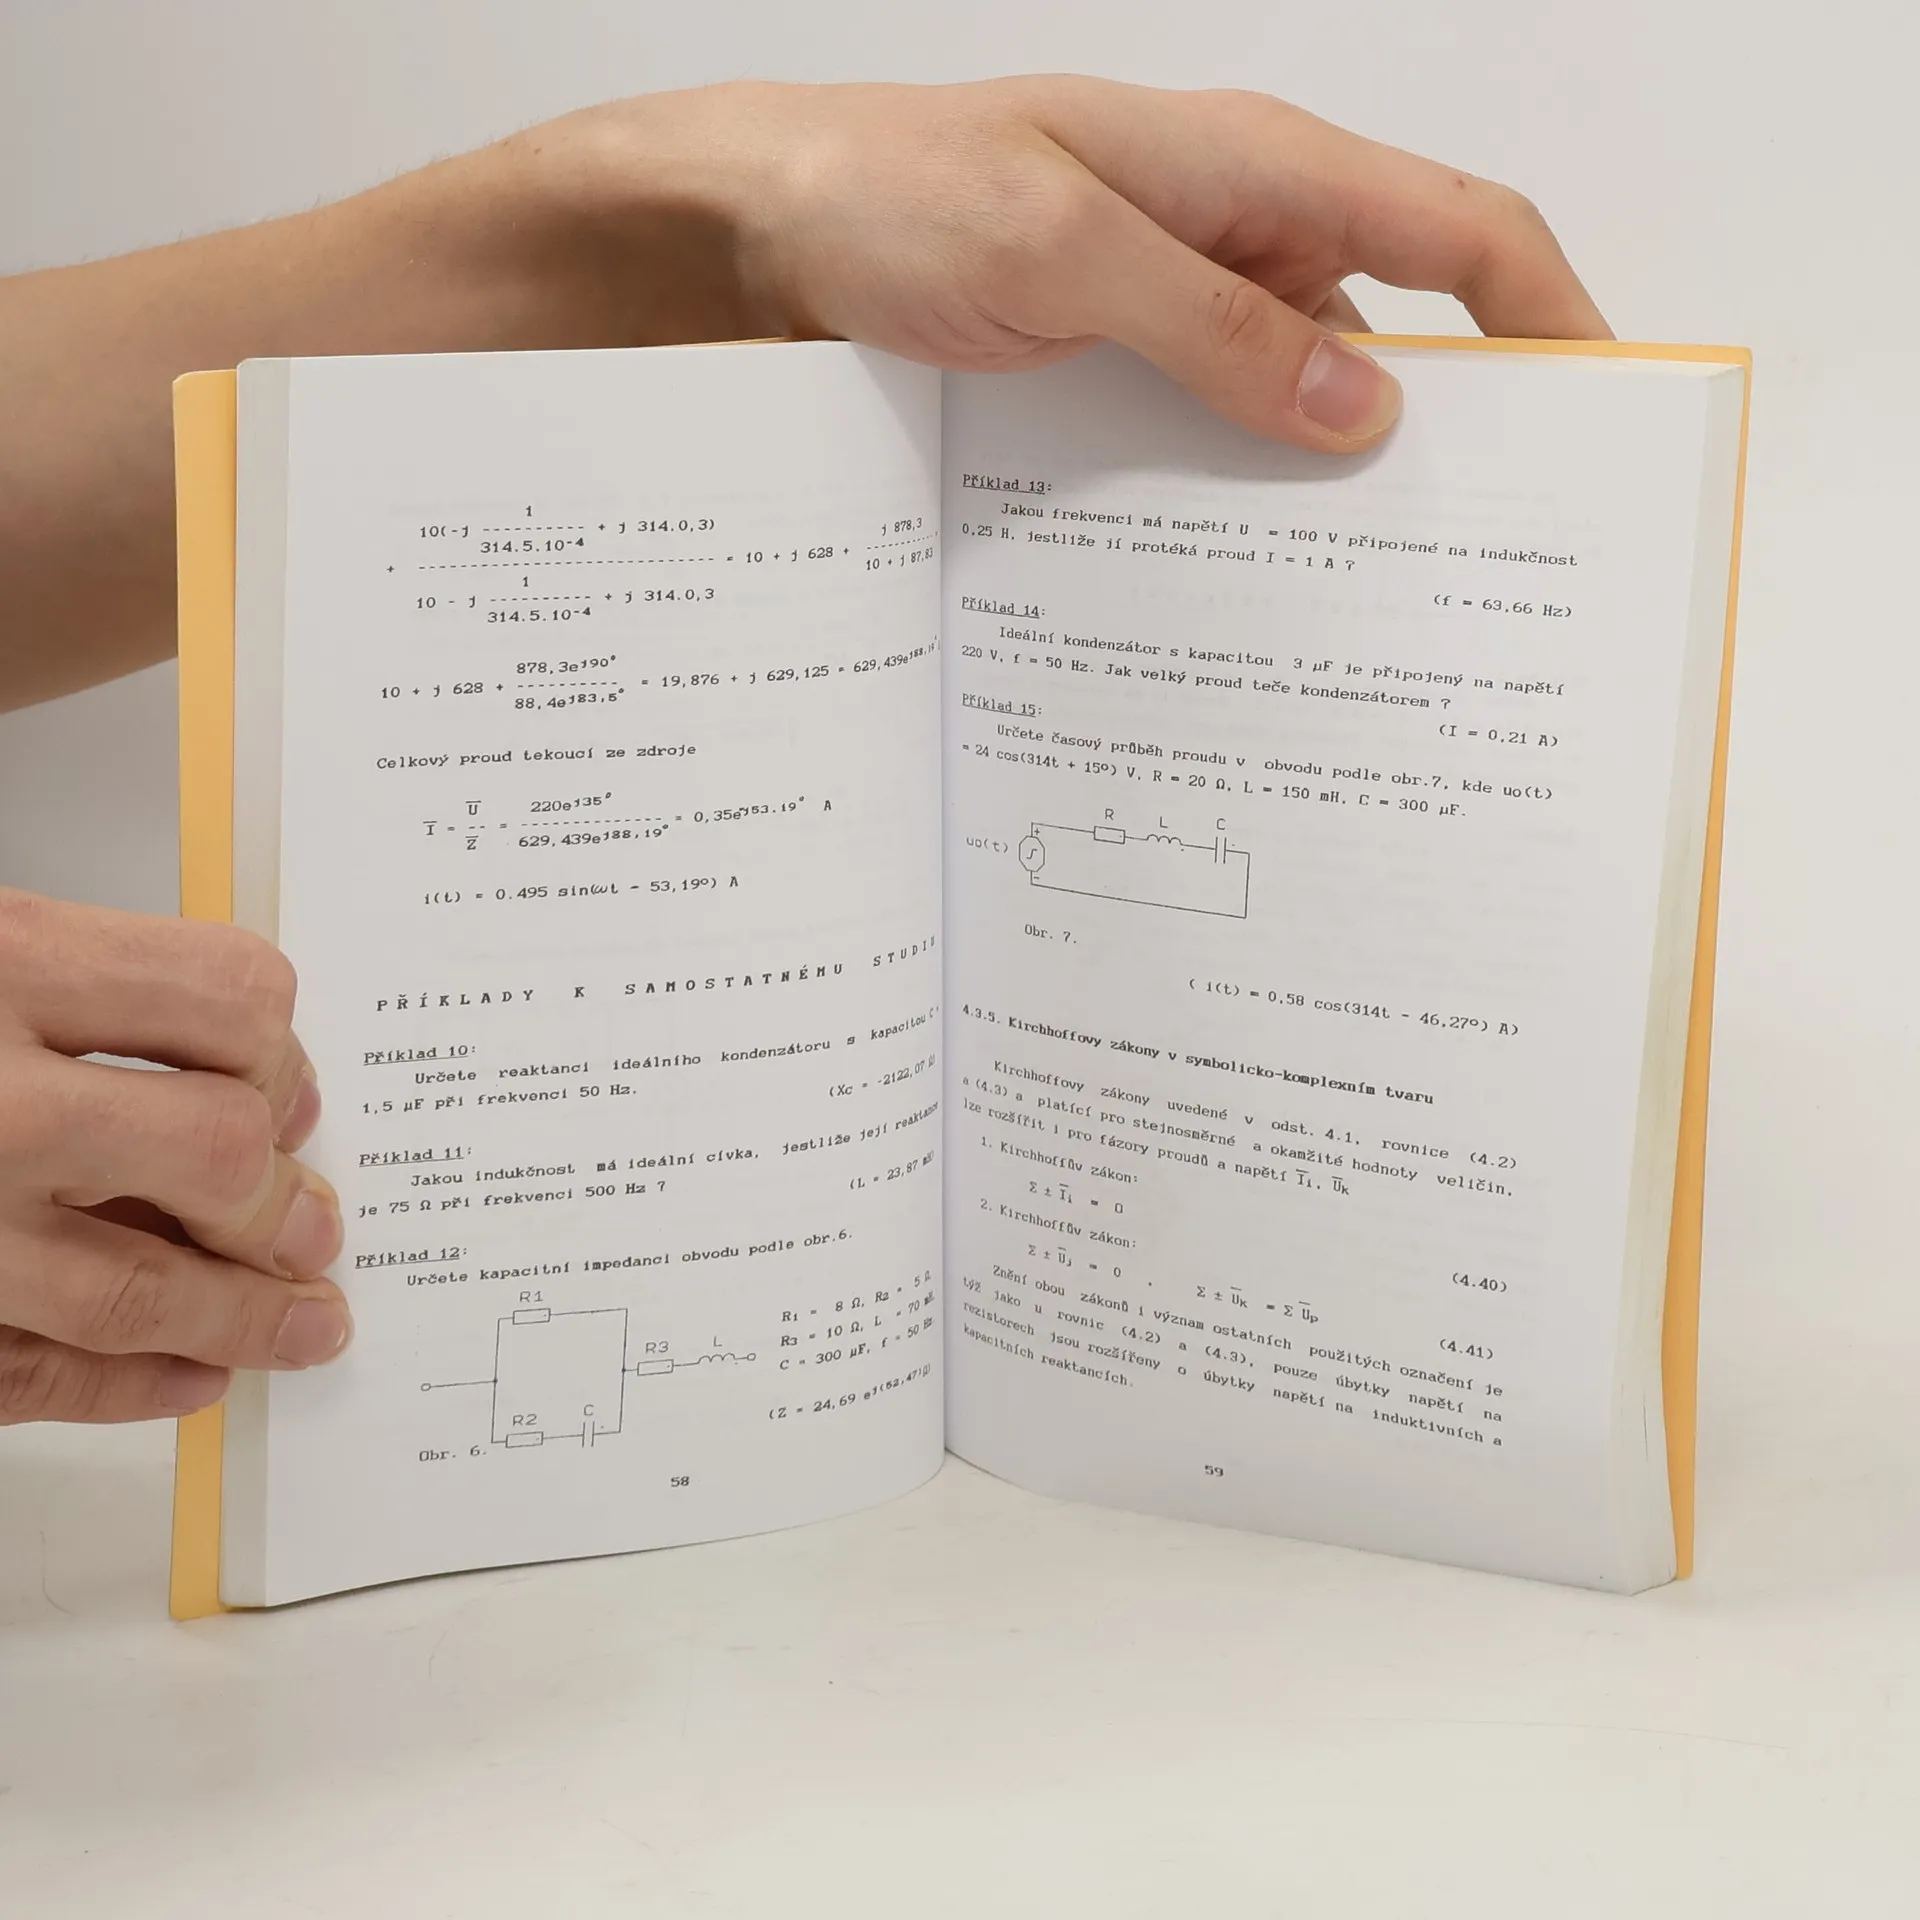 1
10(-j ----------- + j 314.0,3)
314.5.10-4
j 878,3
+ ------------------------------ = 10 + j 628 + -----------
10 + j 87,83
1
10 - j ----------- + j 314.0,3
314.5.10-4
878,3ej90°
10 + j 628 + ----------- = 19,876 + j 629,125 = 629,439ej88,19°
88,4ej83,5°
Celkový proud tekoucí ze zdroje
U 220ej35°
I = -- = --------------- = 0,35e-j53.19° A
Z 629,439ej88,19°
i(t) = 0.495 sin(ωt - 53,19º) A
PŘÍKLADY K SAMOSTATNÉMU STUDIU
Příklad 10:
Určete reaktanci ideálního kondenzátoru s kapacitou C =
1,5 µF při frekvenci 50 Hz.
(Xc = -2122,07 Ω)
Příklad 11:
Jakou indukčnost má ideální cívka, jestliže její reaktance
je 75 Ω při frekvenci 500 Hz ?
(L = 23,87 mH)
Příklad 12:
Určete kapacitní impedanci obvodu podle obr.6.
R1
R3
L
R2
C
R1 = 8 Ω, R2 = 5 Ω
R3 = 10 Ω, L = 70 mH
C = 300 µF, f = 50 Hz
(Z = 24,69 ej(52,47)Ω)
Obr. 6.
58
Příklad 13:
Jakou frekvenci má napětí U = 100 V připojené na indukčnost
0,25 H, jestliže jí protéká proud I = 1 A ?
(f = 63,66 Hz)
Příklad 14:
Ideální kondenzátor s kapacitou 3 µF je připojený na napětí
220 V, f = 50 Hz. Jak velký proud teče kondenzátorem ?
(I = 0,21 A)
Příklad 15:
Určete časový průběh proudu v obvodu podle obr.7, kde uo(t)
= 24 cos(314t + 15º) V, R = 20 Ω, L = 150 mH, C = 300 µF.
R
L
C
uo(t)
+
-
Obr. 7.
( i(t) = 0,58 cos(314t - 46,27º) A)
4.3.5. Kirchhoffovy zákony v symbolicko-komplexním tvaru
Kirchhoffovy zákony uvedené v odst. 4.1, rovnice (4.2)
a (4.3) a platící pro stejnosměrné a okamžité hodnoty veličin,
lze rozšířit i pro fázory proudů a napětí Ii, Uk
1. Kirchhoffův zákon:
Σ ± Ii = 0
(4.40)
2. Kirchhoffův zákon:
Σ ± Uj = 0 , Σ ± Uk = Σ Up
(4.41)
Znění obou zákonů i význam ostatních použitých označení je
týž jako u rovnic (4.2) a (4.3), pouze úbytky napětí na
rezistorech jsou rozšířeny o úbytky napětí na induktivních a
kapacitních reaktancích.
59